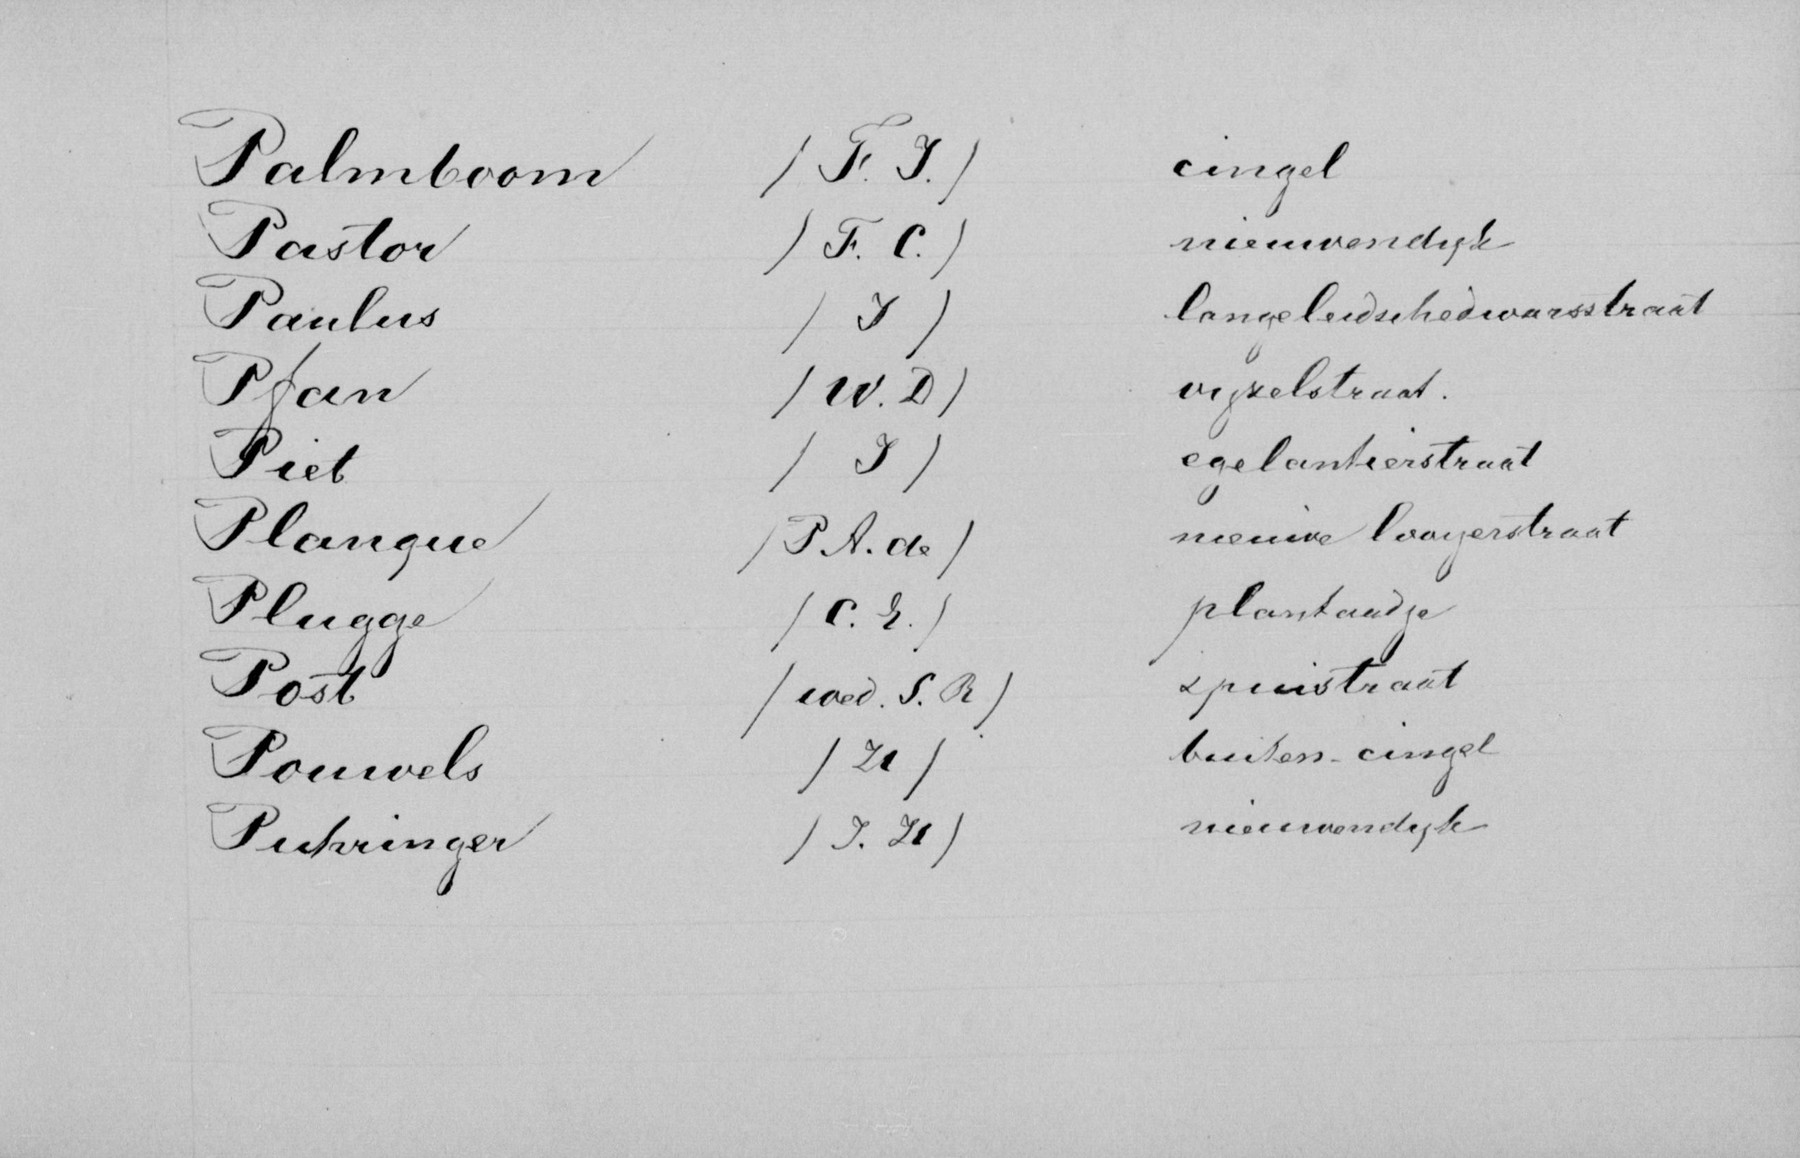 Palmboom / F. J. / cingel
Pastor / F. C. / nieuwendyk
Paulus / J / langeleidschedwarsstraat
Pfan / W. D / vyzelstraat.
Piet / J / egelantierstraat
Planque / P. A. de / nieuwe looyerstraat
Plugge / C. E. / plantaadje
Post / wed. S. R / spuistraat
Pouwels / H / buiten-cingel
Puhringer / J. H / nieuwendyk